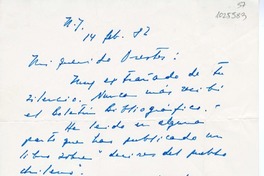 57
1025553
N.Y.
14 feb. 82
Mi querido Orestes:
Muy extrañado de tu
silencio. Nunca más recibí
el Boletín Bibliográfico.
He leído en alguna
parte que has publicado un
libro sobre " del pueblo
chileno".